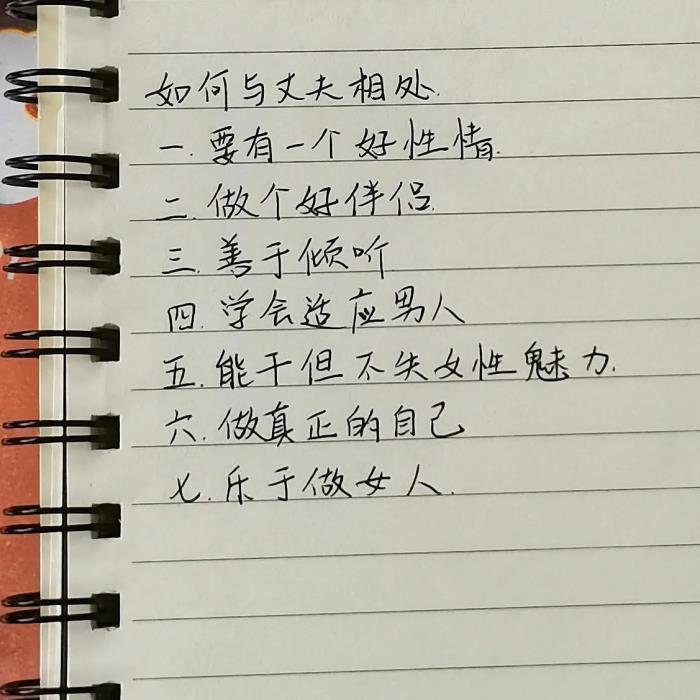 如何与丈夫相处.
一.要有一个好性情.
二.做个好伴侣.
三.善于倾听
四.学会适应男人
五.能干但不失女性魅力.
六.做真正的自己
七.乐于做女人.